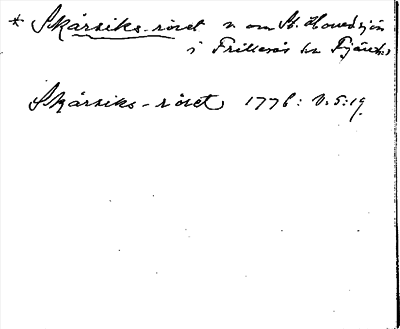 * Skårsiks-röset n. om St. Hornsjön
i Frillesås sn Fjäre hd
Skårsiks-röset 1776: V:5:19.